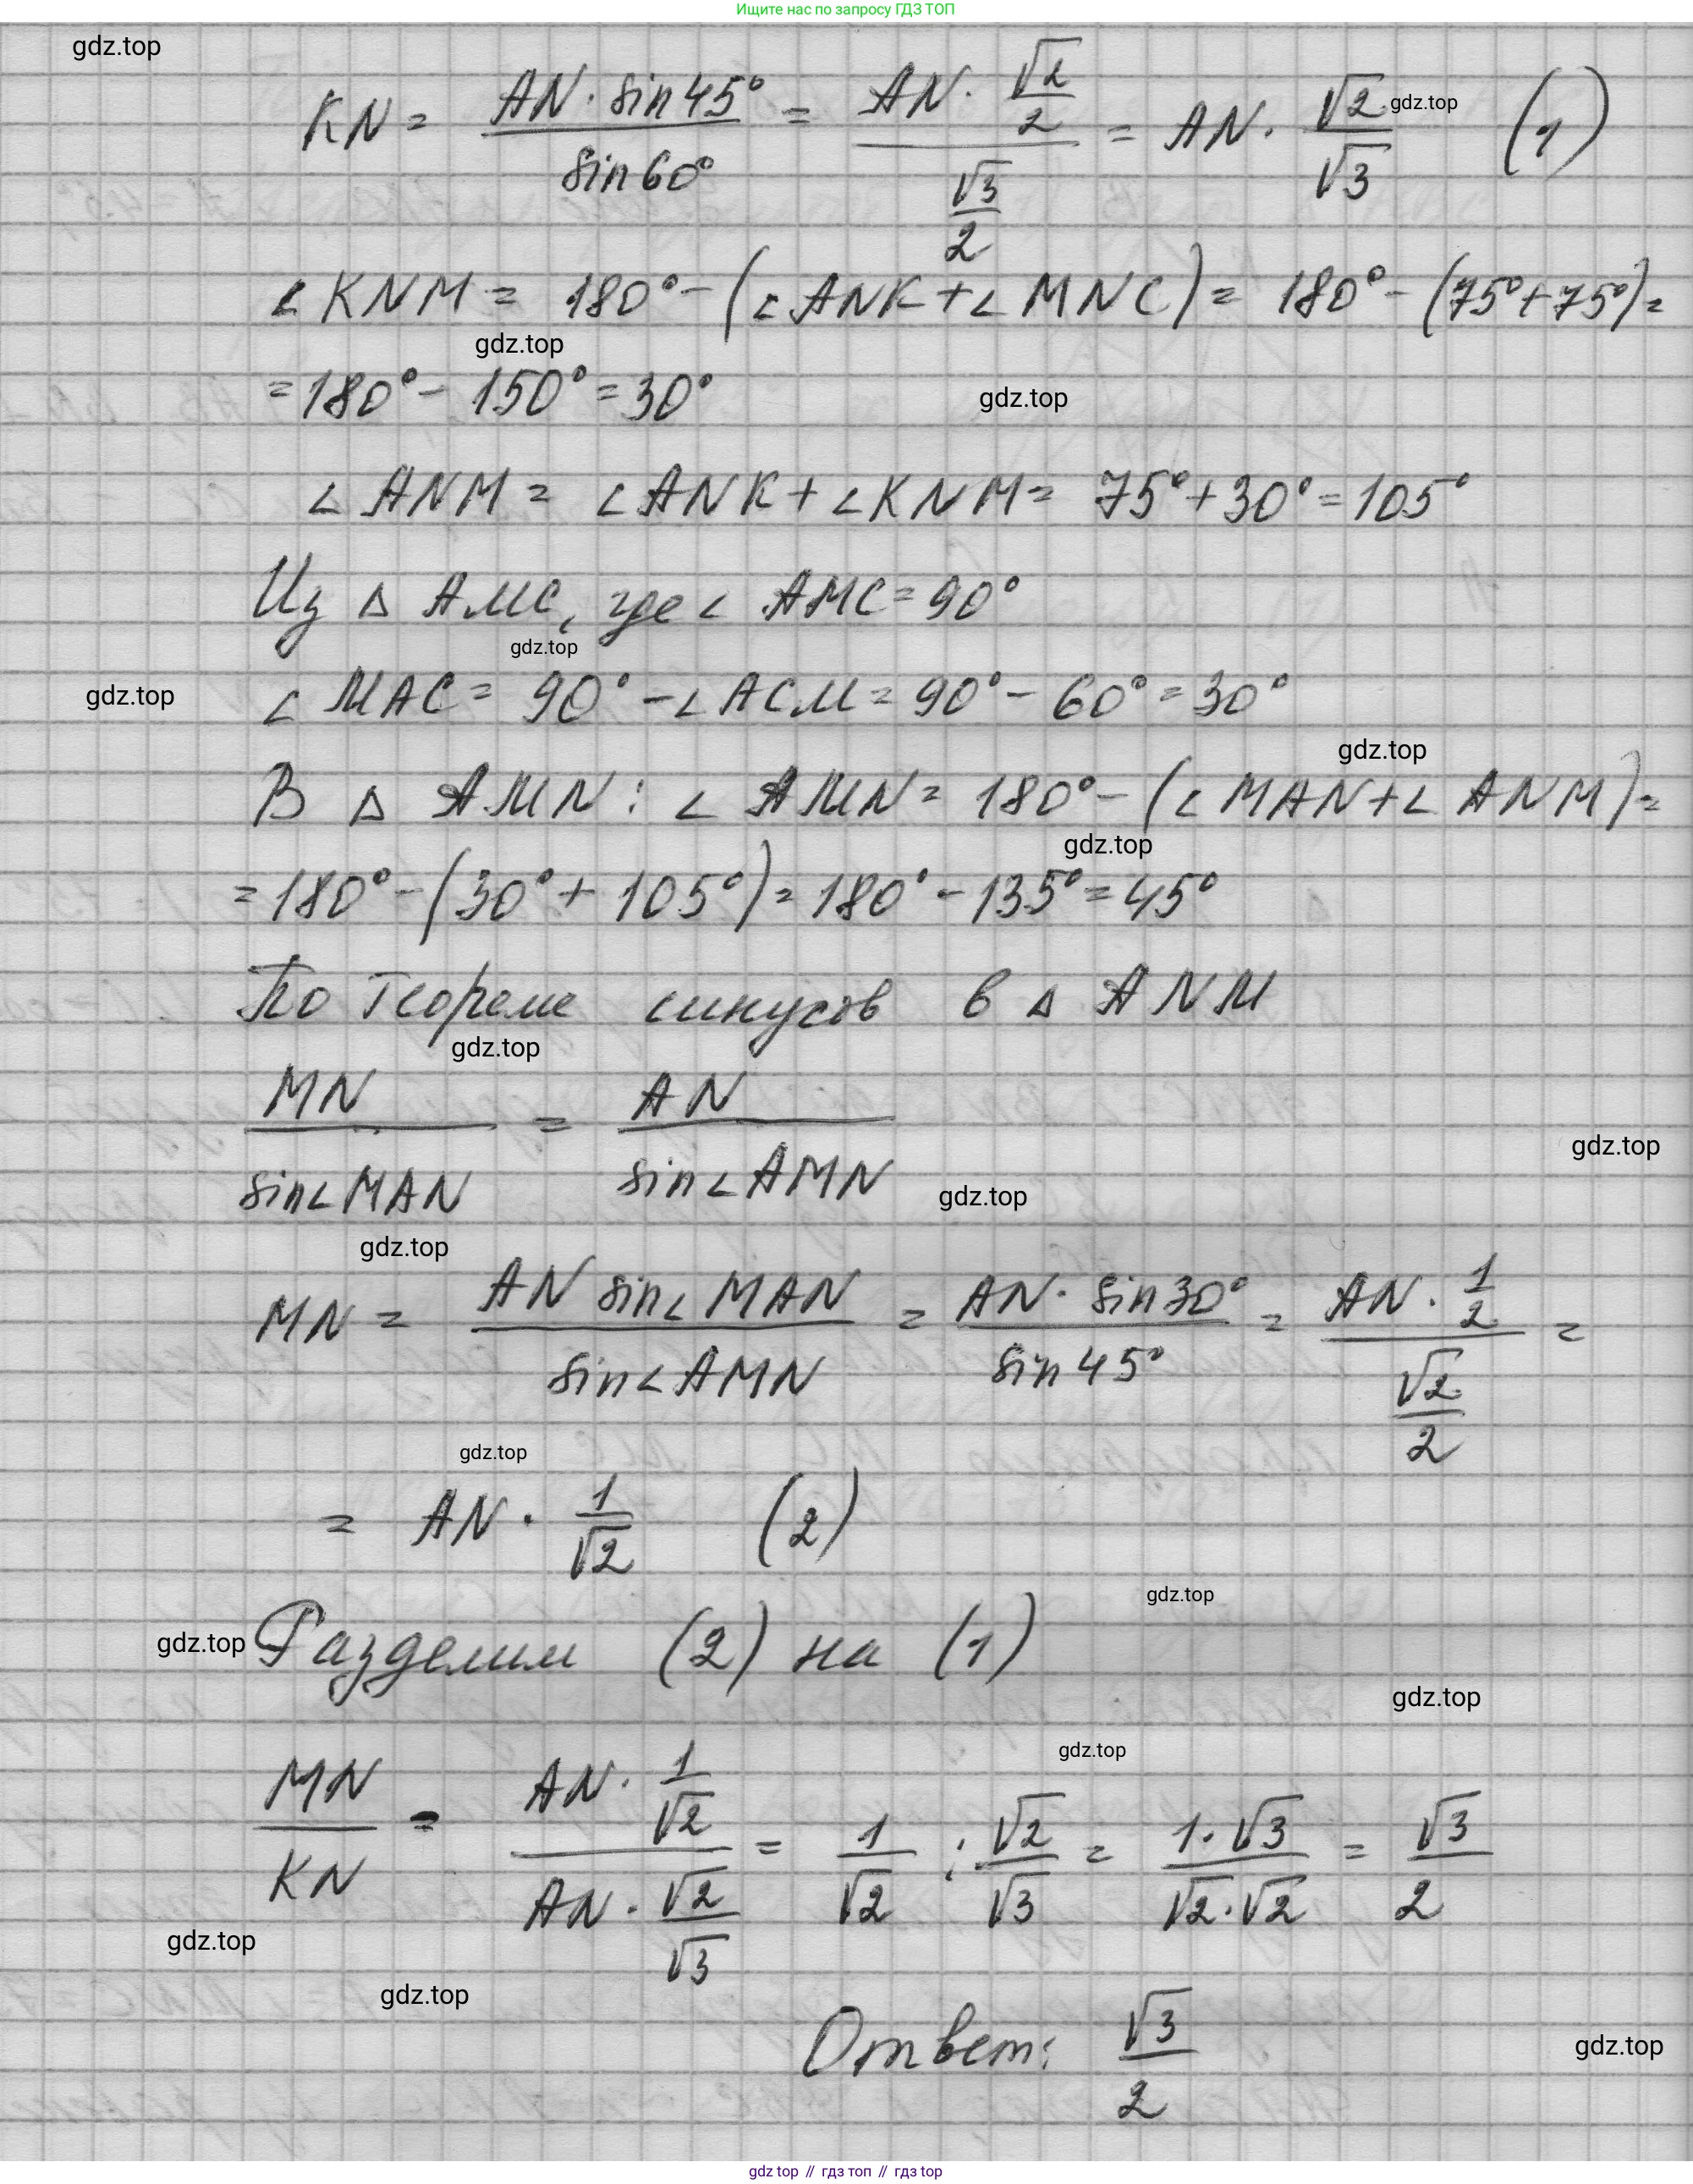 Ищите нас по запросу ГДЗ ТОП
gdz.top
KN = AN · sin 45° / sin 60° = AN · √2/2 / √3/2 = AN · √2/√3 (1)
gdz.top
∠KNM = 180° - (∠ANK + ∠MNC) = 180° - (75° + 75°) =
gdz.top
= 180° - 150° = 30°
gdz.top
∠ANM = ∠ANK + ∠KNM = 75° + 30° = 105°
Из △ AMC, где ∠ AMC = 90°
gdz.top
gdz.top
∠ MAC = 90° - ∠ACM = 90° - 60° = 30°
gdz.top
В △ AMN: ∠ AMN = 180° - (∠ MAN + ∠ ANM) =
gdz.top
= 180° - (30° + 105°) = 180° - 135° = 45°
По теореме синусов в △ ANM
gdz.top
MN / sin∠MAN = AN / sin∠AMN
gdz.top
gdz.top
gdz.top
MN = AN sin∠MAN / sin∠AMN = AN · sin 30° / sin 45° = AN · 1/2 / √2/2 =
gdz.top
= AN · 1/√2 (2)
gdz.top
gdz.top
Разделим (2) на (1)
gdz.top
gdz.top
MN/KN = AN · 1/√2 / AN · √2/√3 = 1/√2 : √2/√3 = 1·√3 / √2·√2 = √3/2
gdz.top
gdz.top
Ответ: √3/2
gdz.top
gdz top // гдз топ // гдз top